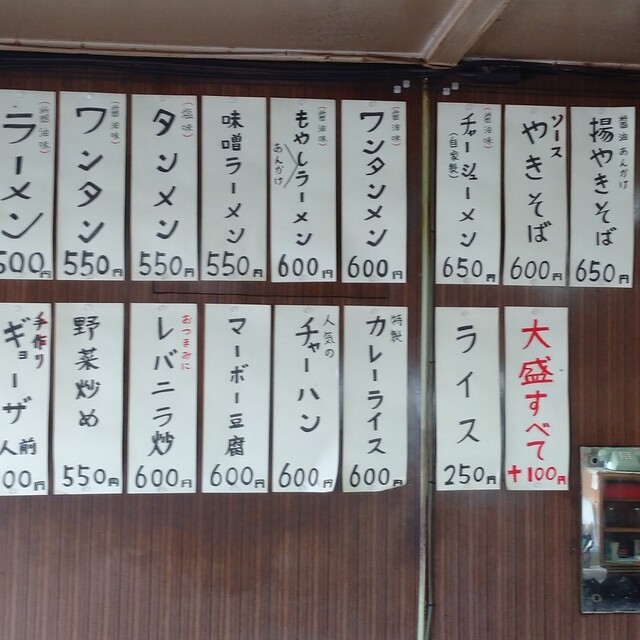 (醤油味)
ラーメン
500円
(醤油味)
ワンタン
550円
(塩味)
タンメン
550円
味噌ラーメン
550円
(醤油味)
もやしラーメン
あんかけ
600円
(醤油味)
ワンタンメン
600円
(醤油味)
チャーシューメン
(自家製)
650円
ソース
やきそば
600円
醤油あんかけ
揚やきそば
650円
手作り
ギョーザ
人前
00円
野菜炒め
550円
おつまみに
レバニラ炒
600円
マーボー豆腐
600円
人気の
チャーハン
600円
特製
カレーライス
600円
ライス
250円
大盛すべて
+100円